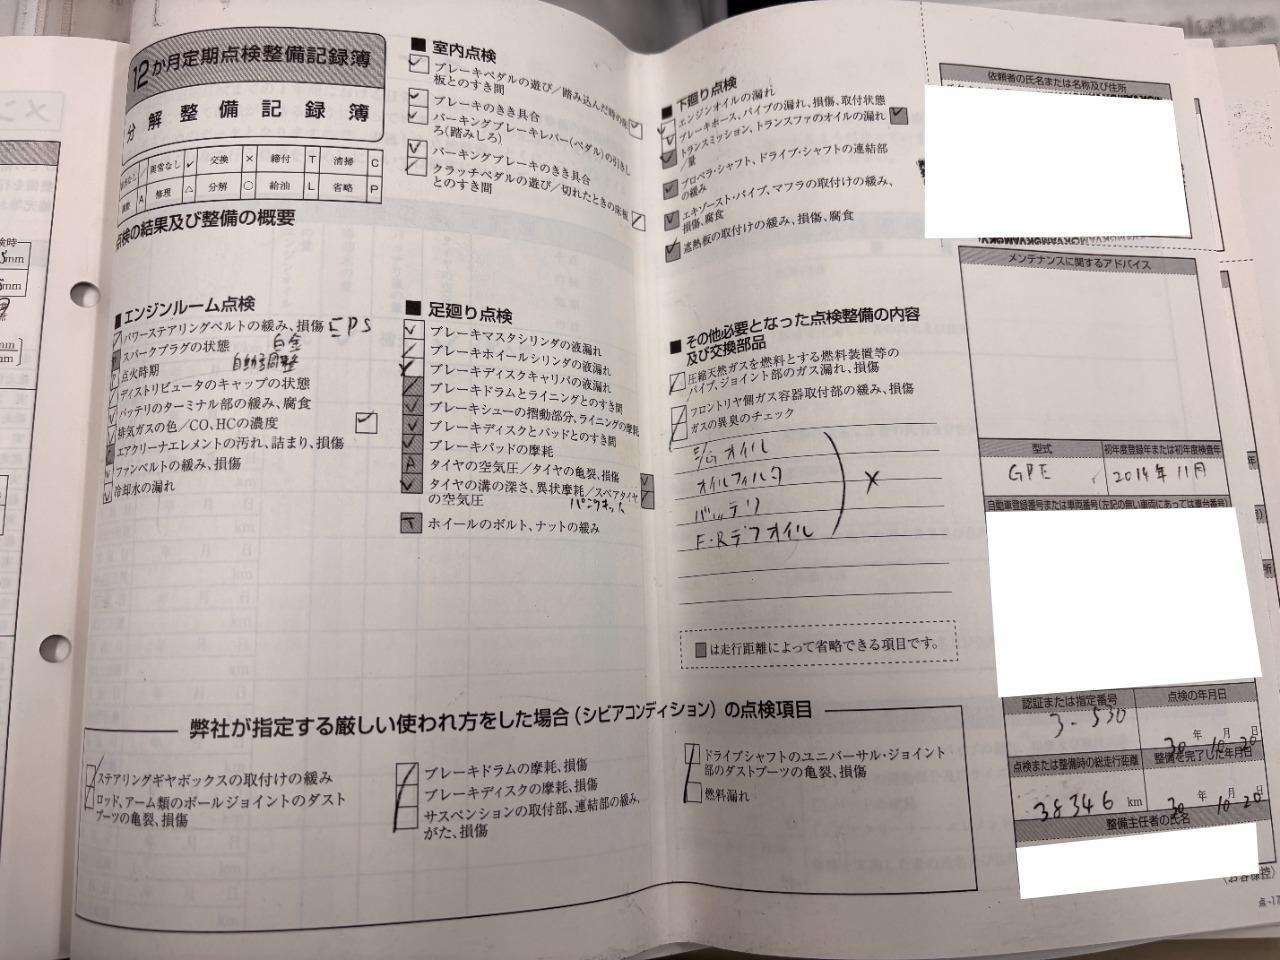 12か月定期点検整備記録簿
分解整備記録簿
異常なし レ 交換 × 締付 T 清掃 C
A 修理 △ 分解 ○ 給油 L 省略 P
点検の結果及び整備の概要
■ エンジンルーム点検
パワーステアリングベルトの緩み、損傷 EPS
スパークプラグの状態 白金
点火時期 自動調整
ディストリビュータのキャップの状態
バッテリのターミナル部の緩み、腐食
排気ガスの色/CO、HCの濃度
エアクリーナエレメントの汚れ、詰まり、損傷
ファンベルトの緩み、損傷
冷却水の漏れ
■ 室内点検
ブレーキペダルの遊び/踏み込んだ時の床
板とのすき間
ブレーキのきき具合
パーキングブレーキレバー(ペダル)の引きし
ろ(踏みしろ)
パーキングブレーキのきき具合
クラッチペダルの遊び/切れたときの床板
とのすき間
■ 足廻り点検
ブレーキマスタシリンダの液漏れ
ブレーキホイールシリンダの液漏れ
ブレーキディスクキャリパの液漏れ
ブレーキドラムとライニングとのすき間
ブレーキシューの摺動部分、ライニングの摩耗
ブレーキディスクとパッドとのすき間
ブレーキパッドの摩耗
A タイヤの空気圧/タイヤの亀裂、損傷
タイヤの溝の深さ、異状摩耗/スペアタイヤ
の空気圧 パンクキット
T ホイールのボルト、ナットの緩み
■ 下廻り点検
エンジンオイルの漏れ
ブレーキホース、パイプの漏れ、損傷、取付状態
トランスミッション、トランスファのオイルの漏れ
/量
プロペラ・シャフト、ドライブ・シャフトの連結部
の緩み
エキゾースト・パイプ、マフラの取付けの緩み、
損傷、腐食
遮熱板の取付けの緩み、損傷、腐食
■ その他必要となった点検整備の内容
及び交換部品
圧縮天然ガスを燃料とする燃料装置等の
パイプ、ジョイント部のガス漏れ、損傷
フロントリヤ側ガス容器取付部の緩み、損傷
ガスの異臭のチェック
E/Gオイル
オイルフィルタ
バッテリ
F・Rデフオイル
×
■は走行距離によって省略できる項目です。
弊社が指定する厳しい使われ方をした場合(シビアコンディション)の点検項目
ステアリングギヤボックスの取付けの緩み
ロッド、アーム類のボールジョイントのダスト
ブーツの亀裂、損傷
ブレーキドラムの摩耗、損傷
ブレーキディスクの摩耗、損傷
サスペンションの取付部、連結部の緩み、
がた、損傷
ドライブシャフトのユニバーサル・ジョイント
部のダストブーツの亀裂、損傷
燃料漏れ
依頼者の氏名または名称及び住所
メンテナンスに関するアドバイス
型式 初年度登録年または初年度検査年
GPE 2014年11月
自動車登録番号または車両番号(左記の無い車両にあっては車台番号)
認証または指定番号 点検の年月日
3-530 30年10月20日
点検または整備時の総走行距離 整備を完了した年月日
38346 km 30年10月20日
整備主任者の氏名
(お客様控)
点-17